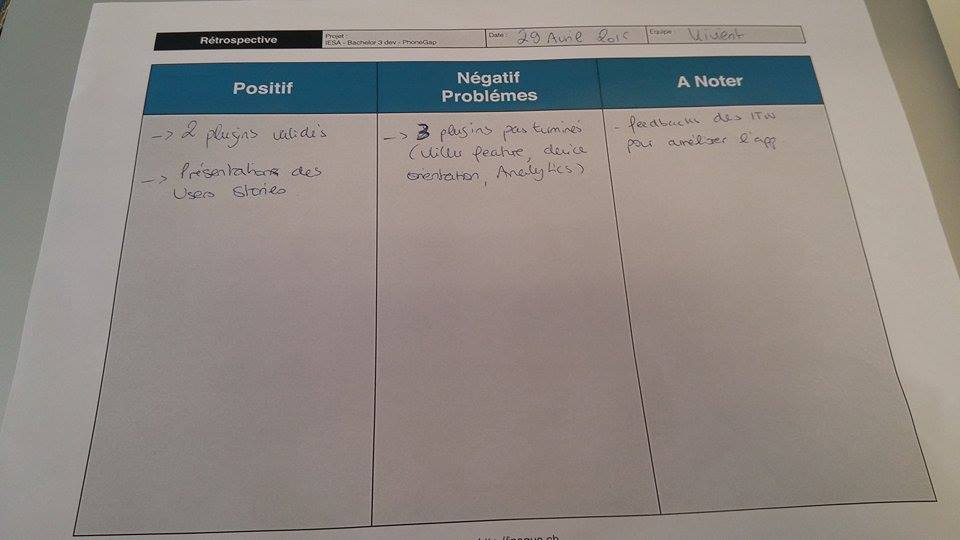 Rétrospective
Projet :
IESA - Bachelor 3 dev - PhoneGap
Date : 29 Avril
Equipe :
Positif
Négatif
Problémes
A Noter
-> 2 plugins validés
-> Présentations des
Users Stories
-> 3 plugins pas terminés
(killer feature, device
orientation, Analytics)
- feedbacks des ITW
pour améliorer l'app